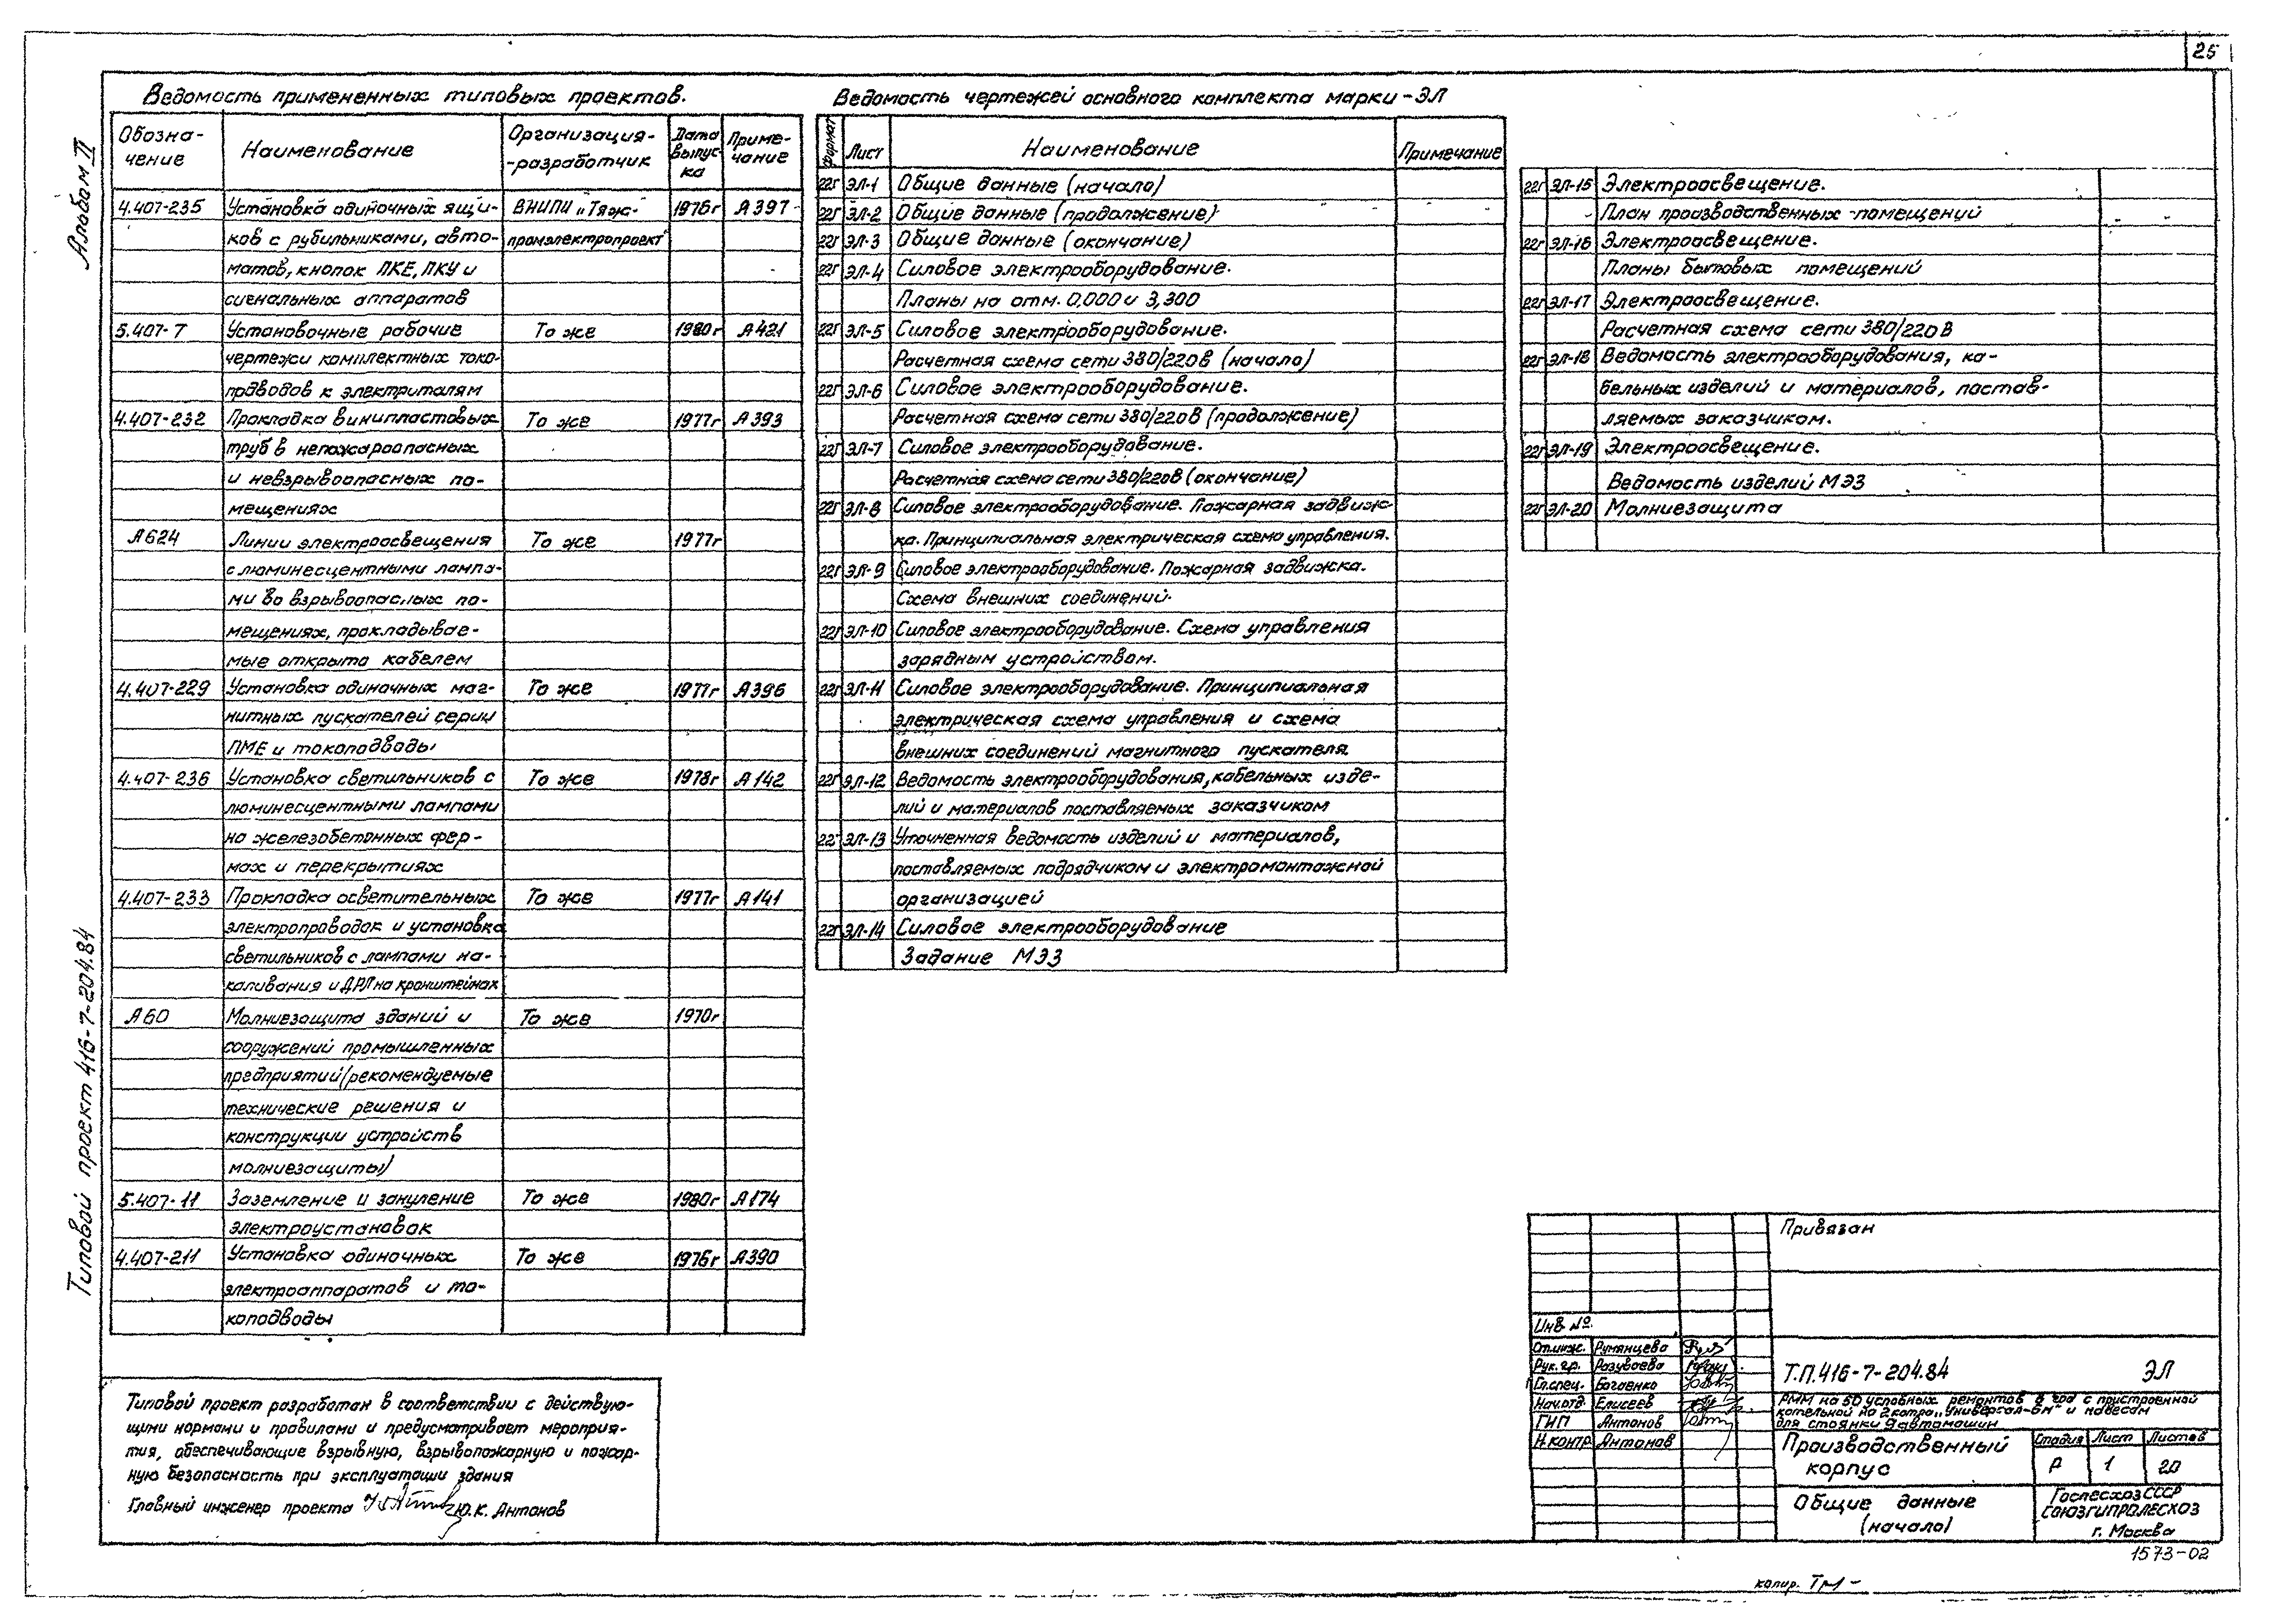 25
Альбом II
Типовой проект 416-7-204.84
Ведомость примененных типовых проектов.
Обозна-чение Наименование Организация-разработчик Дата выпуска Примечание
4.407-235 Установка одиночных ящи- ВНИПИ „Тяж- 1976г А397
ков с рубильниками, авто- промэлектропроект"
матов, кнопок ПКЕ, ПКУ и
сигнальных аппаратов
5.407-7 Установочные рабочие То же 1980г А421
чертежи комплектных токо-
подводов к электриталям
4.407-232 Прокладка винипластовых То же 1977г А393
труб в непожароопасных
и невзрывоопасных по-
мещениях
А624 Линии электроосвещения То же 1977г
с люминесцентными лампа-
ми во взрывоопасных по-
мещениях, прокладывае-
мые открыто кабелем
4.407-229 Установка одиночных маг- То же 1977г А396
нитных пускателей серии
ПМЕ и токоподводы
4.407-236 Установка светильников с То же 1978г А142
люминесцентными лампами
на железобетонных фер-
мах и перекрытиях
4.407-233 Прокладка осветительных То же 1977г А141
электропроводок и установка
светильников с лампами на-
каливания и ДРЛ на кронштейнах
А60 Молниезащита зданий и То же 1970г
сооружений промышленных
предприятий (рекомендуемые
технические решения и
конструкции устройств
молниезащиты)
5.407-11 Заземление и зануление То же 1980г А174
электроустановок
4.407-211 Установка одиночных То же 1976г А390
электроаппаратов и то-
коподводы
Типовой проект разработан в соответствии с действую-
щими нормами и правилами и предусматривает мероприя-
тия, обеспечивающие взрывную, взрывопожарную и пожар-
ную безопасность при эксплуатации здания
Главный инженер проекта Ю.К. Антонов
Ведомость чертежей основного комплекта марки -ЭЛ
Формат Лист Наименование Примечание
22г ЭЛ-1 Общие данные (начало)
22г ЭЛ-2 Общие данные (продолжение)
22г ЭЛ-3 Общие данные (окончание)
22г ЭЛ-4 Силовое электрооборудование.
Планы на отм. 0,000 и 3,300
22г ЭЛ-5 Силовое электрооборудование.
Расчетная схема сети 380/220В (начало)
22г ЭЛ-6 Силовое электрооборудование.
Расчетная схема сети 380/220В (продолжение)
22г ЭЛ-7 Силовое электрооборудование.
Расчетная схема сети 380/220В (окончание)
22г ЭЛ-8 Силовое электрооборудование. Пожарная задвиж-
ка. Принципиальная электрическая схема управления.
22г ЭЛ-9 Силовое электрооборудование. Пожарная задвижка.
Схема внешних соединений.
22г ЭЛ-10 Силовое электрооборудование. Схема управления
зарядным устройством.
22г ЭЛ-11 Силовое электрооборудование. Принципиальная
электрическая схема управления и схема
внешних соединений магнитного пускателя
22г ЭЛ-12 Ведомость электрооборудования, кабельных изде-
лий и материалов поставляемых заказчиком
22г ЭЛ-13 Уточненная ведомость изделий и материалов,
поставляемых подрядчиком и электромонтажной
организацией
22г ЭЛ-14 Силовое электрооборудование
Задание МЭЗ
22г ЭЛ-15 Электроосвещение.
План производственных помещений
22г ЭЛ-16 Электроосвещение.
Планы бытовых помещений
22г ЭЛ-17 Электроосвещение.
Расчетная схема сети 380/220В
22г ЭЛ-18 Ведомость электрооборудования, ка-
бельных изделий и материалов, постав-
ляемых заказчиком.
22г ЭЛ-19 Электроосвещение.
Ведомость изделий МЭЗ
22г ЭЛ-20 Молниезащита
Привязан
Инв №
Ст.инж. Румянцева
Рук.гр. Разуваева
Гл.спец. Богаенко
Нач.отд Елисеев
ГИП Антонов
Н.контр Антонов
Т.П.416-7-204.84 ЭЛ
РММ на 50 условных ремонтов в год с пристроенной
котельной на 2 котла „Универсал-6М" и навесом
для стоянки 9 автомашин
Производственный корпус
Стадия Лист Листов
Р 1 20
Общие данные (начало)
Гослесхоз СССР
СОЮЗГИПРОЛЕСХОЗ
г. Москва
1573-02
копир.